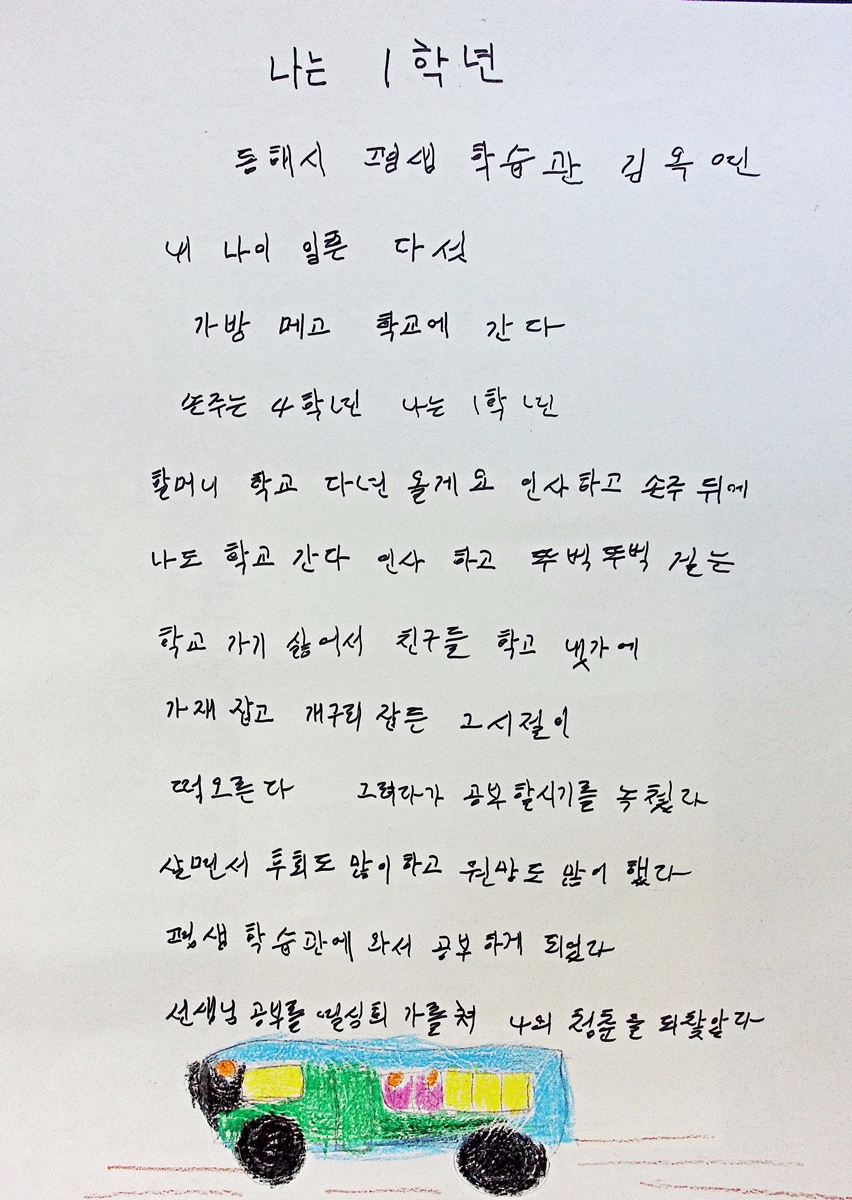 나는 1학년
동해시 평생 학습관 김옥연
내 나이 일흔 다섯
가방 메고 학교에 간다
손주는 4학년 나는 1학년
할머니 학교 다년 올게요 인사하고 손주 뒤에
나도 학교 간다 인사 하고 뚜벅뚜벅 걸는
학교 가기 싫어서 친구들 학고 냇가에
가재 잡고 개구리 잡든 그시절이
떡오른다 그려다가 공부할시기를 녹첬다
살면서 후회도 많이하고 원망도 많이 했다
평생 학습관에 와서 공부하게 되었다
선생님 공부를 열심희 가를쳐 나의 청춘을 되찿았다